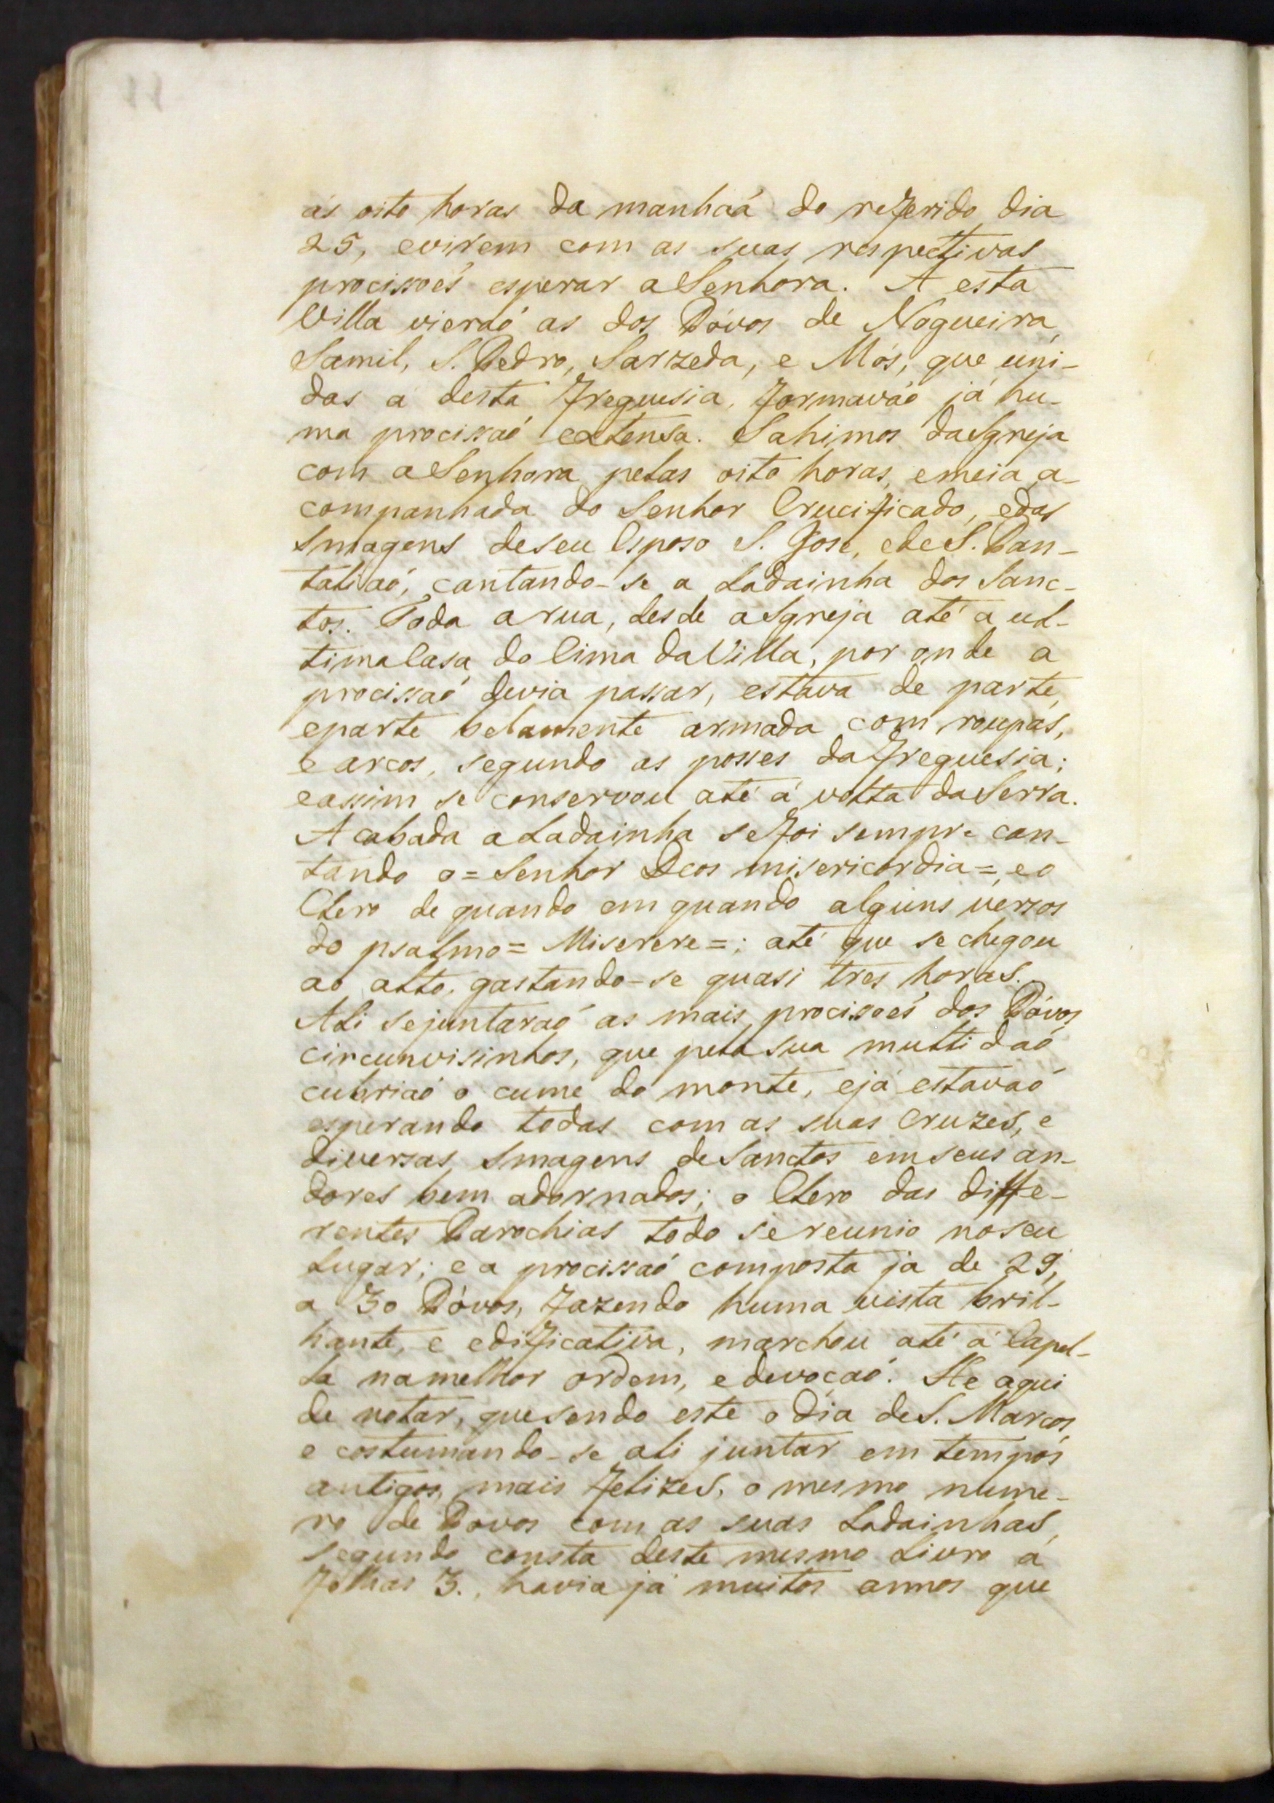 ás oito horas da manhaá do referido dia
25, evirem com as suas respectivas
procissoẽs esperar aSenhora. A esta
Villa vieraó as dos Póvos de Nogueira,
Samil, S. Pedro, Sarzeda, e Mós, que uni-
das á desta Freguesia, formavaó já hu-
ma procissaó extensa. Sahimos daIgreja
com aSenhora pelas oito horas, emeia, a-
companhada do Senhor Crucificado, edas
Imagens deseu Esposo S. José, edeS. Pan-
taliaó, cantando-se a Ladainha dos Sanc-
tos. Toda arua, desde aIgreja até a ul-
timaCasa do Cima daVilla, por onde a
procissaó devia passar, estava de parte,
eparte belamente armada com roupas,
e arcos, segundo as posses daFreguesia;
eassim se conservou até á volta daSerra.
Acabada aLadainha sefoi sempre can-
tando o = Senhor Deos misericordia =, eo
Clero de quando em quando alguns versos
do psalmo = Miserere =; até que se chegou
ao alto, gastando-se quasi tres horas.
Ali sejuntaraó as mais procissoẽs dos Póvos
circunvisinhos, que pela sua multidaó
cubriaó o cume do monte, ejá estavaó
esperando todas com as suas cruzes, e
diversas Imagens deSanctos emseus an-
dores bem adornados; o Clero das diffe-
rentes Parochias todo se reunio noseu
lugar; e a procissaó composta já de 29,
a 30 Póvos, fazendo huma vista bril-
hante, e edificativa, marchou até á Capel-
la namelhor ordem, edevoçaó. He aqui
de notar, quesendo este odia deS. Marcos,
e costumando-se ali juntar em tempos
antigos, mais felizes, o mesmo nume-
ro de Povos com as suas Ladainhas,
segundo consta deste mesmo Livro á
folhas 3., havia já muitos annos que